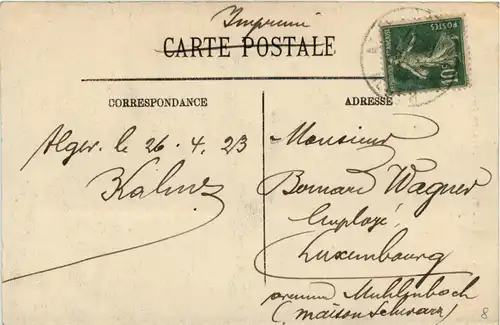 Imprimé
CARTE POSTALE
POSTES
10
CORRESPONDANCE
ADRESSE
Alger. le 26. 4. 23
Monsieur
Bernard Wagner
employé
Luxembourg
avenue Muhlenbach
(maison Schwarz)
8